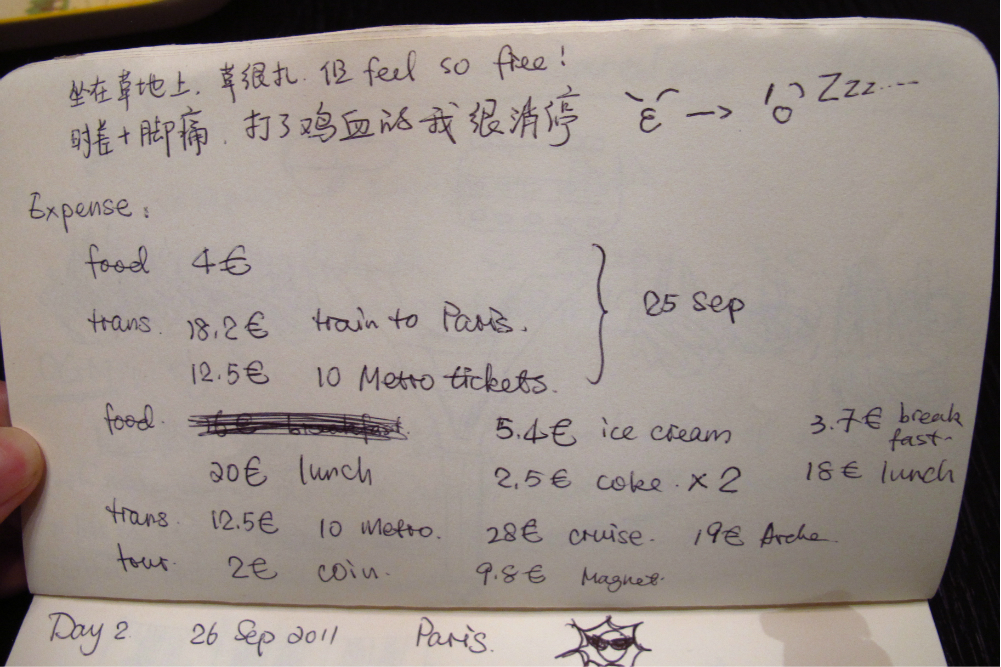 坐在草地上,草很扎.但 feel so free!
时差+脚痛.打了鸡血的我很消停 → Zzz....
Expense:
food 4€
trans. 18.2€ train to Paris.
12.5€ 10 Metro tickets.
25 Sep
food. 5.4€ ice cream 3.7€ break
fast.
20€ lunch 2.5€ coke. x2 18€ lunch
trans. 12.5€ 10 Metro. 28€ cruise. 19€ Arche.
tour. 2€ coin. 9.8€ Magnet.
Day 2 26 Sep 2011 Paris.